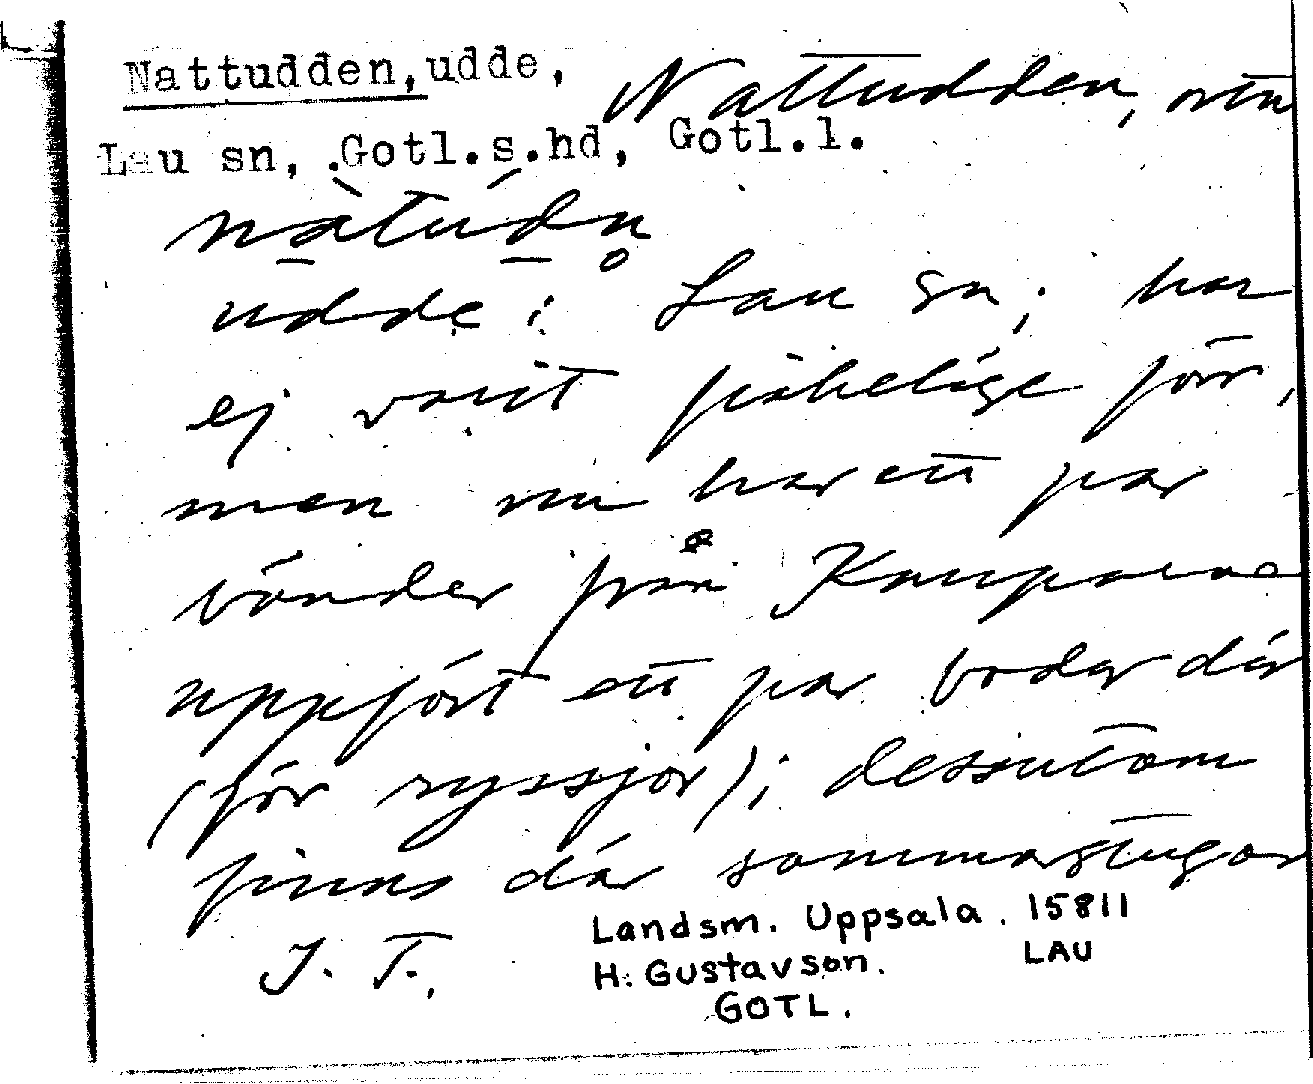 Nattudden, udde,
Nattudden,
Lau sn, Gotl.s.hd, Gotl.l.
nàtúdn̥
udde i Lau sn; har
ej varit fiskeläge förr,
men nu har ett par
bönder från Kauparve
uppfört ett par bodar där
(för ryssjor); dessutom
finns där sommarstugor
J. T.
Landsm. Uppsala. 15811
H. Gustavson. LAU
GOTL.